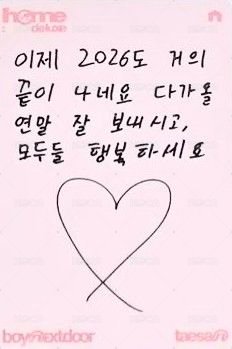 home
deluxe
이제 2026도 거의
끝이 나네요 다가올
연말 잘 보내시고,
모두들 행복하세요
boynextdoor
taesan